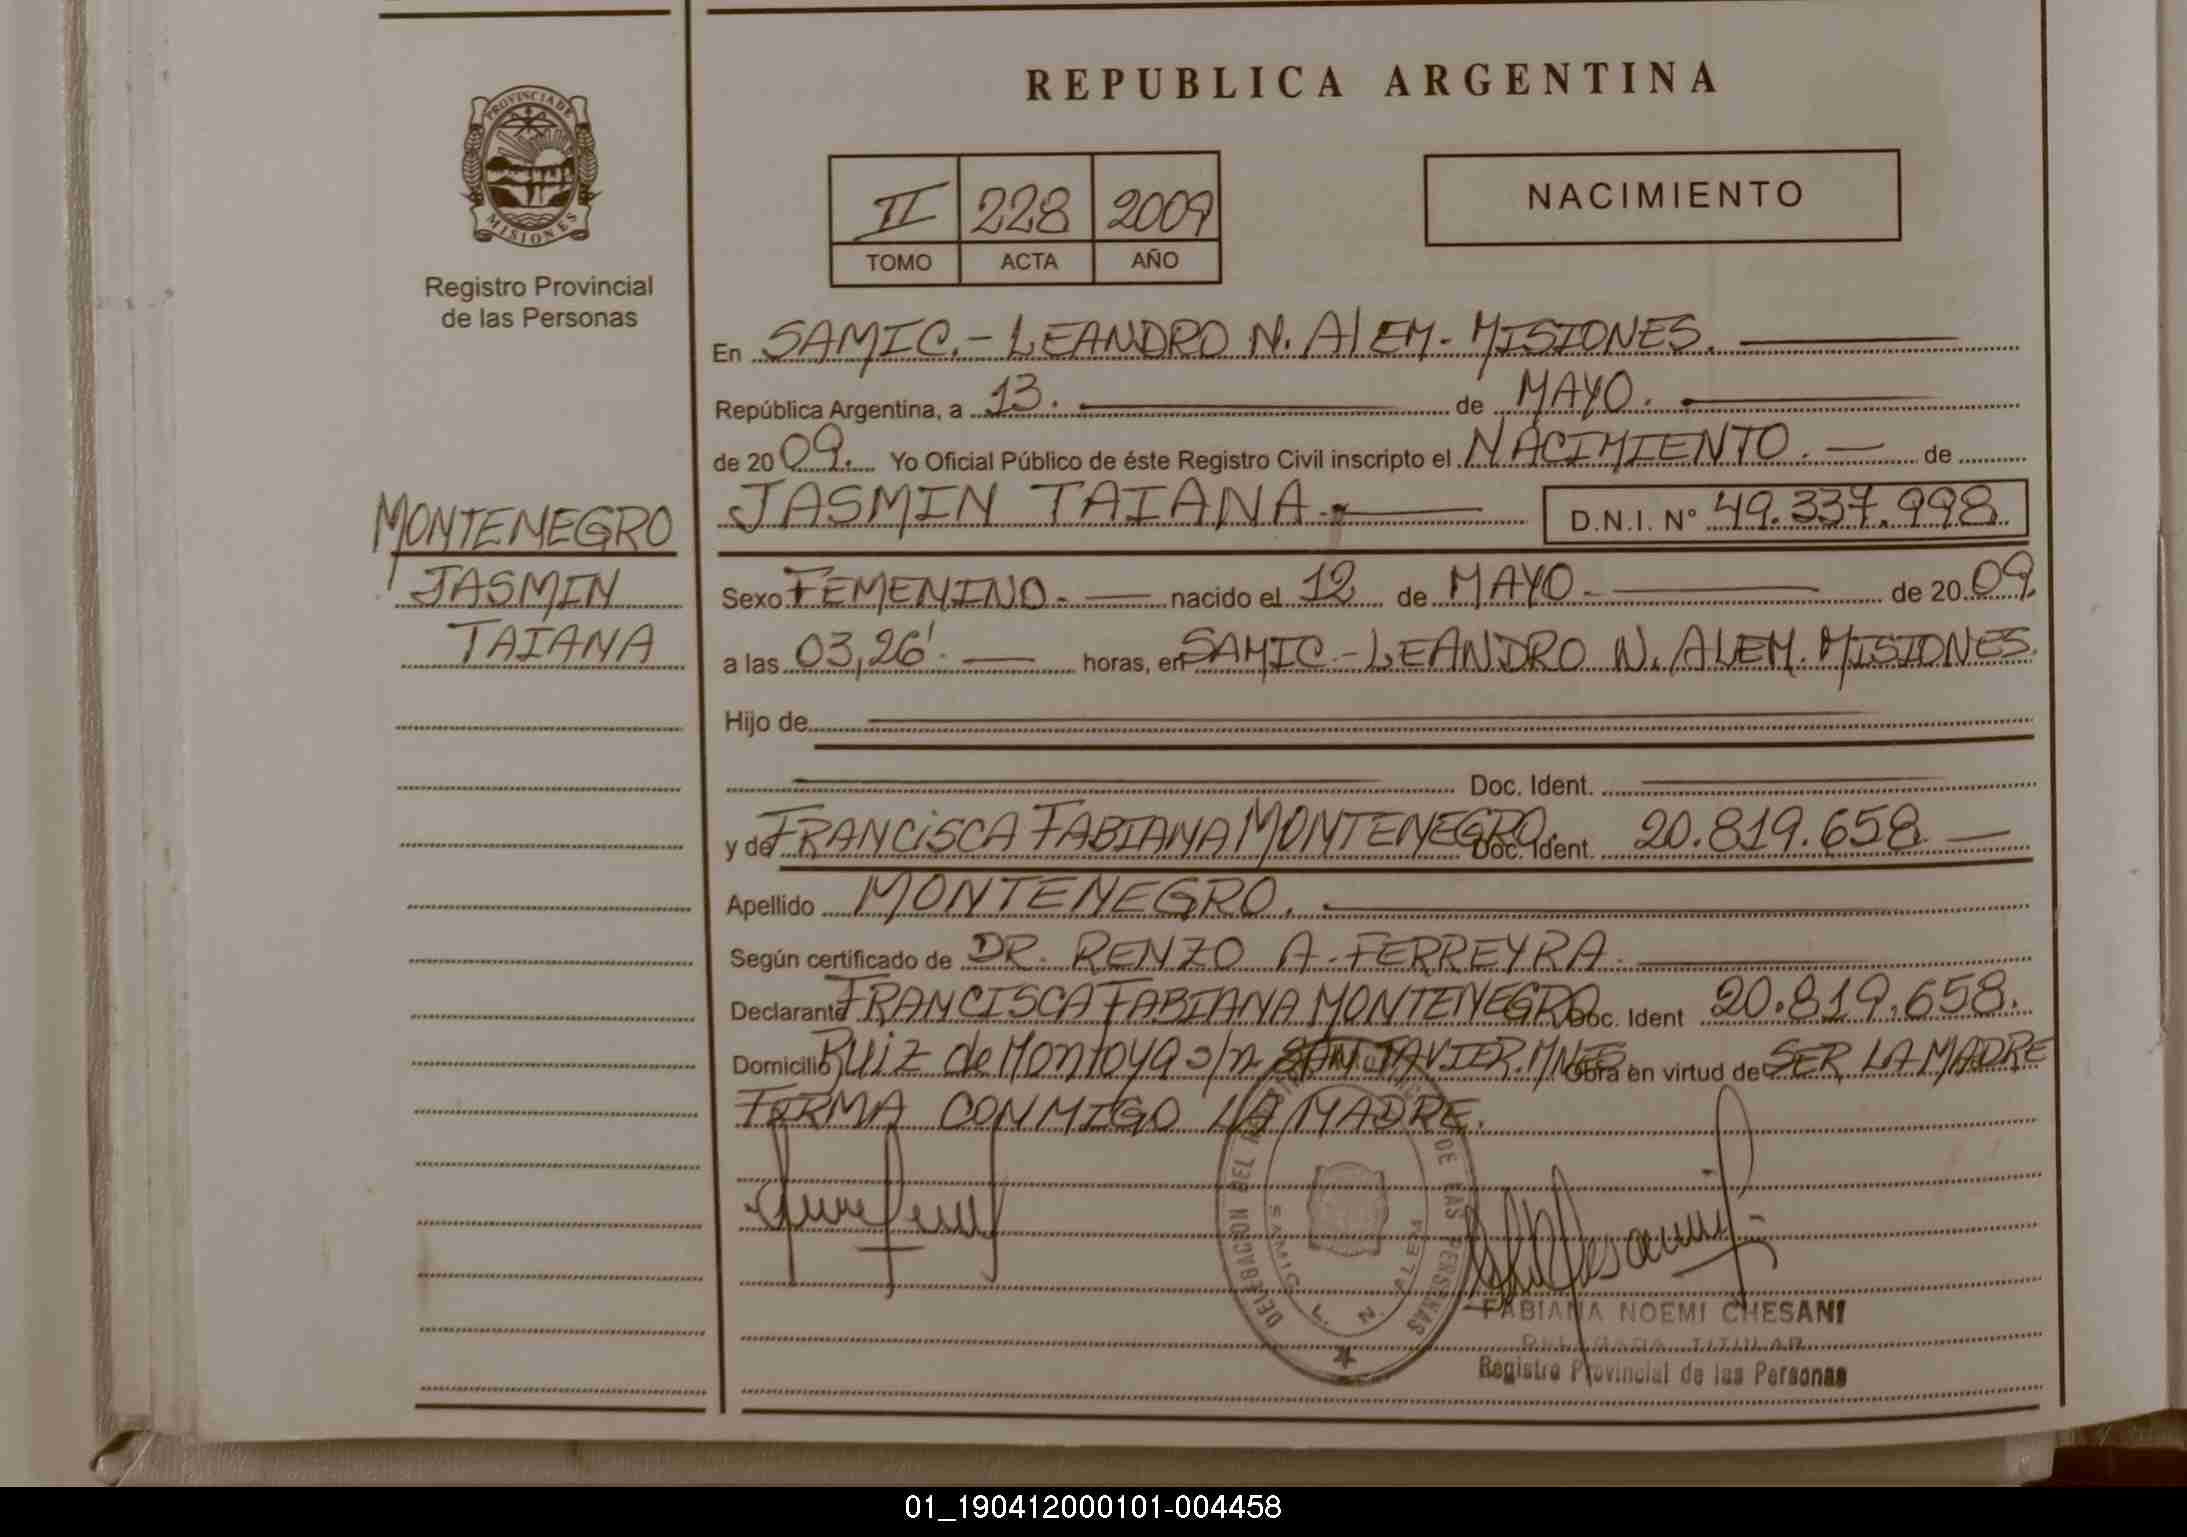 REPUBLICA ARGENTINA
PROVINCIA DE
MISIONES
Registro Provincial
de las Personas
II 228 2009
TOMO ACTA AÑO
NACIMIENTO
En SAMIC.- LEANDRO N. ALEM - MISIONES.
República Argentina, a 13. de MAYO.
de 2009. Yo Oficial Público de éste Registro Civil inscripto el NACIMIENTO. — de
JASMIN TAIANA.- D.N.I. N° 49.337.998
MONTENEGRO
JASMIN
TAIANA
Sexo FEMENINO. — nacido el 12 de MAYO - de 2009.
a las 03,26'. — horas, en SAMIC.-LEANDRO N. ALEM. MISIONES.
Hijo de
Doc. Ident.
y de FRANCISCA FABIANA MONTENEGRO. Doc. Ident. 20.819.658 —
Apellido MONTENEGRO.
Según certificado de DR. RENZO A. FERREYRA.
Declarante FRANCISCA FABIANA MONTENEGRO Doc. Ident 20.819.658.
Domicilio Ruiz de Montoya s/n SAN JAVIER. MNES. Obra en virtud de SER LA MADRE
FIRMA CONMIGO LA MADRE.
DELEGACION DEL DE LAS PERSONAS
SAMIC L. N. ALEM
FABIANA NOEMI CHESANI
DELEGADA TITULAR
Registro Provincial de las Personas
01_190412000101-004458